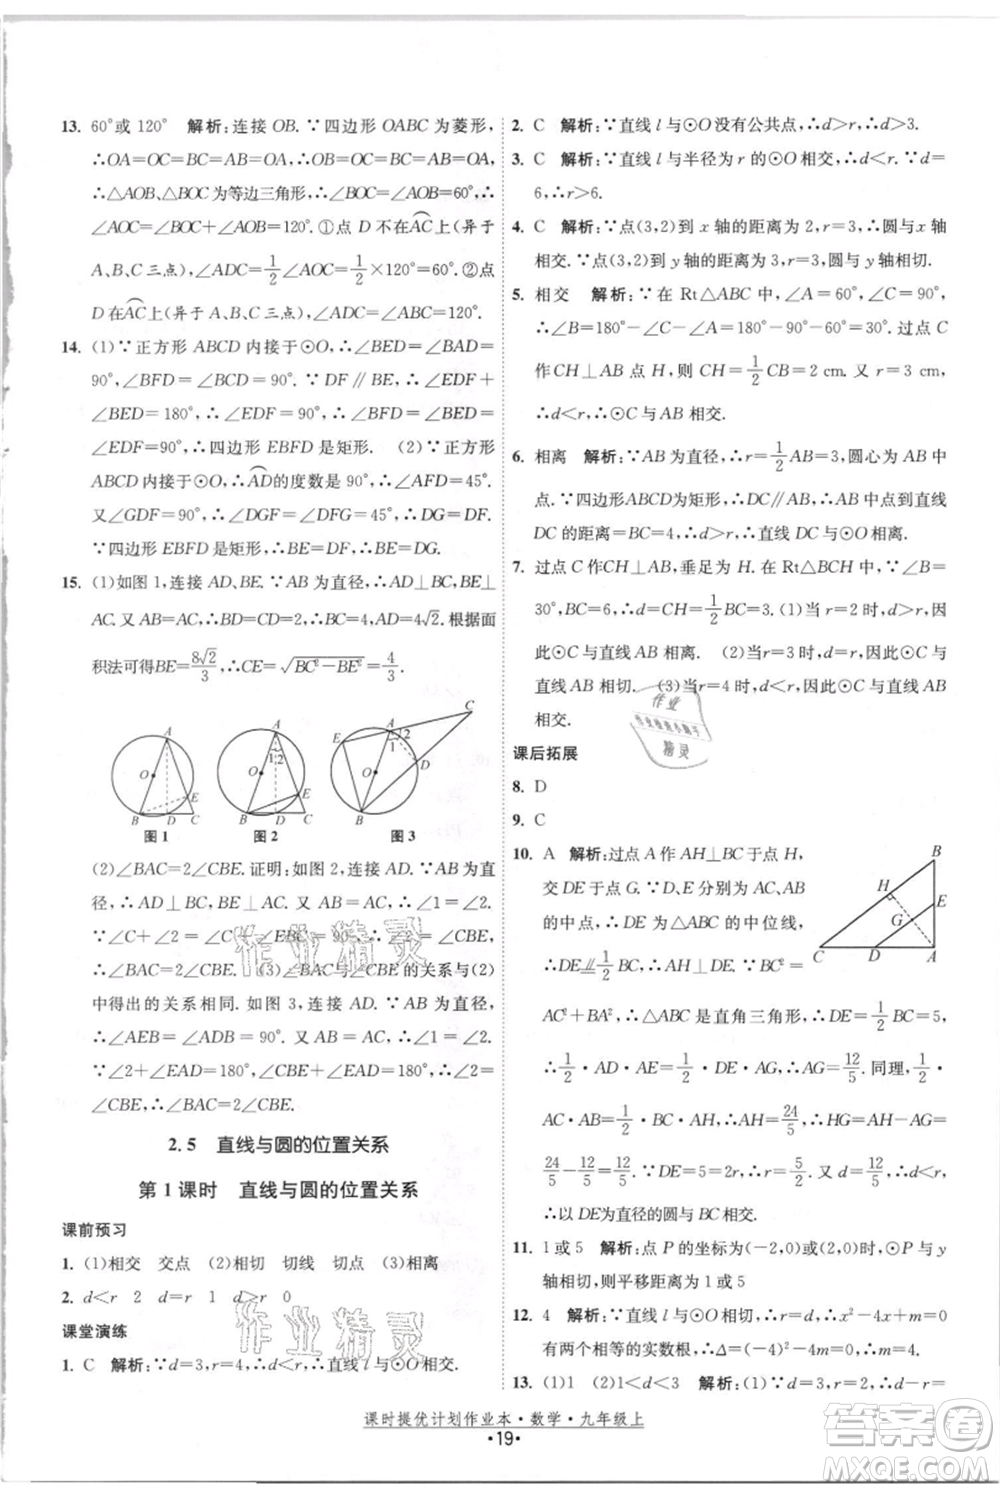 13. 60°或 120° 解析:连接 OB. ∵四边形 OABC 为菱形,
∴OA=OC=AB=BC. ∵OA=OB,∴OA=OB=AB=BC,
∴△AOB、△BOC 为等边三角形,∴∠AOB=∠BOC=60°,
∴∠AOC=120°. ①点 D 不在AC上(异于 A、B、C三点),
∠ADC=1/2∠AOC=1/2×120°=60°.②点
D 在AC上(异于 A、B、C 三点),∠ADC=120°.
14. (1)∵正方形 ABCD 内接于⊙O,∴∠BED=∠BAD=
90°,∠BFD=∠BCD=90°. ∵DF∥BE,∴∠EDF+
∠BED=180°,∴∠EDF=90°,∴∠BFD=∠BED=
∠EDF=90°,∴四边形 EBFD 是矩形. (2)∵正方形
ABCD 内接于⊙O,∴AD的度数是 90°,∴∠AFD=45°.
又∠GDF=90°,∴∠DGF=∠DFG=45°,∴DG=DF.
∵四边形 EBFD 是矩形,∴BE=DF,∴BE=DG.
15. (1)如图 1,连接 AD、BE. ∵AB 为直径,∴AD⊥BC,BE⊥
AC. 又∵AB=AC,∴BD=CD=2,∴AD=4√2. 根据面
积法可得BE=8√2/3,∴CE=√(BC²-BE²)=4/3.
A
O
E
B D C
图 1
A
1 2
O
E
B D C
图 2
E A C
1 2
O D
B
图 3
(2)∠BAC=2∠CBE. 证明:如图 2,连接 AD. ∵AB 为直
径,∴AD⊥BC. 又∵AB=AC,∴∠1=∠2. ∵∠BEC=
90°,∴∠C+∠2=∠C+∠CBE=90°,∴∠2=∠CBE,
∴∠BAC=2∠CBE. (3)∠BAC与∠CBE 的关系与(2)
中得出的关系相同. 如图 3,连接 AD. ∵AB 为直径,
∴∠AEB=∠ADB=90°. ∵AB=AC,∴∠1=∠2.
∵∠2+∠EAD=180°,∠CBE+∠EAD=180°,∴∠2=
∠CBE,∴∠BAC=2∠CBE.
2.5 直线与圆的位置关系
第 1 课时 直线与圆的位置关系
课前预习
1. (1)相交 交点 (2)相切 切线 切点 (3)相离
2. d<r 2 d=r 1 d>r 0
课堂演练
1. C 解析:∵d=3,r=4,∴d<r,∴直线 l 与⊙O 相交.
2. C 解析:∵直线 l 与⊙O 没有公共点,∴d>r,∴d>3.
3. C 解析:∵直线 l 与半径为 r 的⊙O 相交,∴d<r. ∵d=
6,∴r>6.
4. C 解析:∵点(3,2)到 x 轴的距离为2,r=3,∴圆与x轴
相交. ∵点(3,2)到 y 轴的距离为 3,r=3,∴圆与y轴相切.
5. 相交 解析:∵在 Rt△ABC 中,∠A=60°,∠C=90°,
∴∠B=180°-∠A-∠C=180°-90°-60°=30°. 过点 C
作CH⊥AB 点 H,则CH=1/2CB=2 cm. 又∵r=3 cm,
∴d<r,∴⊙C 与 AB 相交.
6. 相离 解析:∵AB 为直径,∴r=1/2AB=3,圆心为 AB 中
点. ∵四边形ABCD为矩形,∴DC∥AB,∴AB 中点到直线
DC 的距离=BC=4,∴d>r,∴直线 DC 与⊙O 相离.
7. 过点 C 作CH⊥AB,垂足为 H. 在 Rt△BCH 中,∵∠B=
30°,BC=6,∴d=CH=1/2BC=3.(1)当 r=2 时,d>r,因
此⊙C 与直线 AB 相离. (2)当r=3 时,d=r,因此⊙C 与
直线 AB 相切. (3)当r=4 时,d<r,因此⊙C 与直线 AB
相交.
课后拓展
8. D
9. C
10. A 解析:过点 A 作 AH⊥BC 于点 H,
交 DE 于点 G. ∵D、E分别为 AC、AB
的中点,∴DE 为△ABC 的中位线,
∴DE∥=1/2BC,∴AG=HG. ∵BC²=
AC²+BA²,∴△ABC 是直角三角形,∴DE=1/2BC=5,
∴1/2·AD·AE=1/2·DE·AG,∴AG=12/5. 同理,1/2·
AC·AB=1/2·BC·AH,∴AH=24/5,∴HG=AH-AG=
24/5-12/5=12/5. ∵DE/2=5/2,12/5<5/2,
∴以 DE为直径的圆与 BC 相交.
B
H
E
G
C D A
11. 1 或 5 解析:点 P 的坐标为(-2,0)或(2,0),⊙P 与 y
轴相切,则平移距离为 1 或 5
12. 4 解析:∵直线 l 与⊙O 相切,∴r=d,∴x²-4x+m=0
有两个相等的实数根,∴Δ=(-4)²-4m=0,∴m=4.
13. (1)1 (2)1<d<3 解析:(1)∵d=3,r=2,∴d-r=
课时提优计划作业本·数学·九年级上
·19·
作业精灵
作业精灵
作业
精灵
答案圈
MXQE.COM